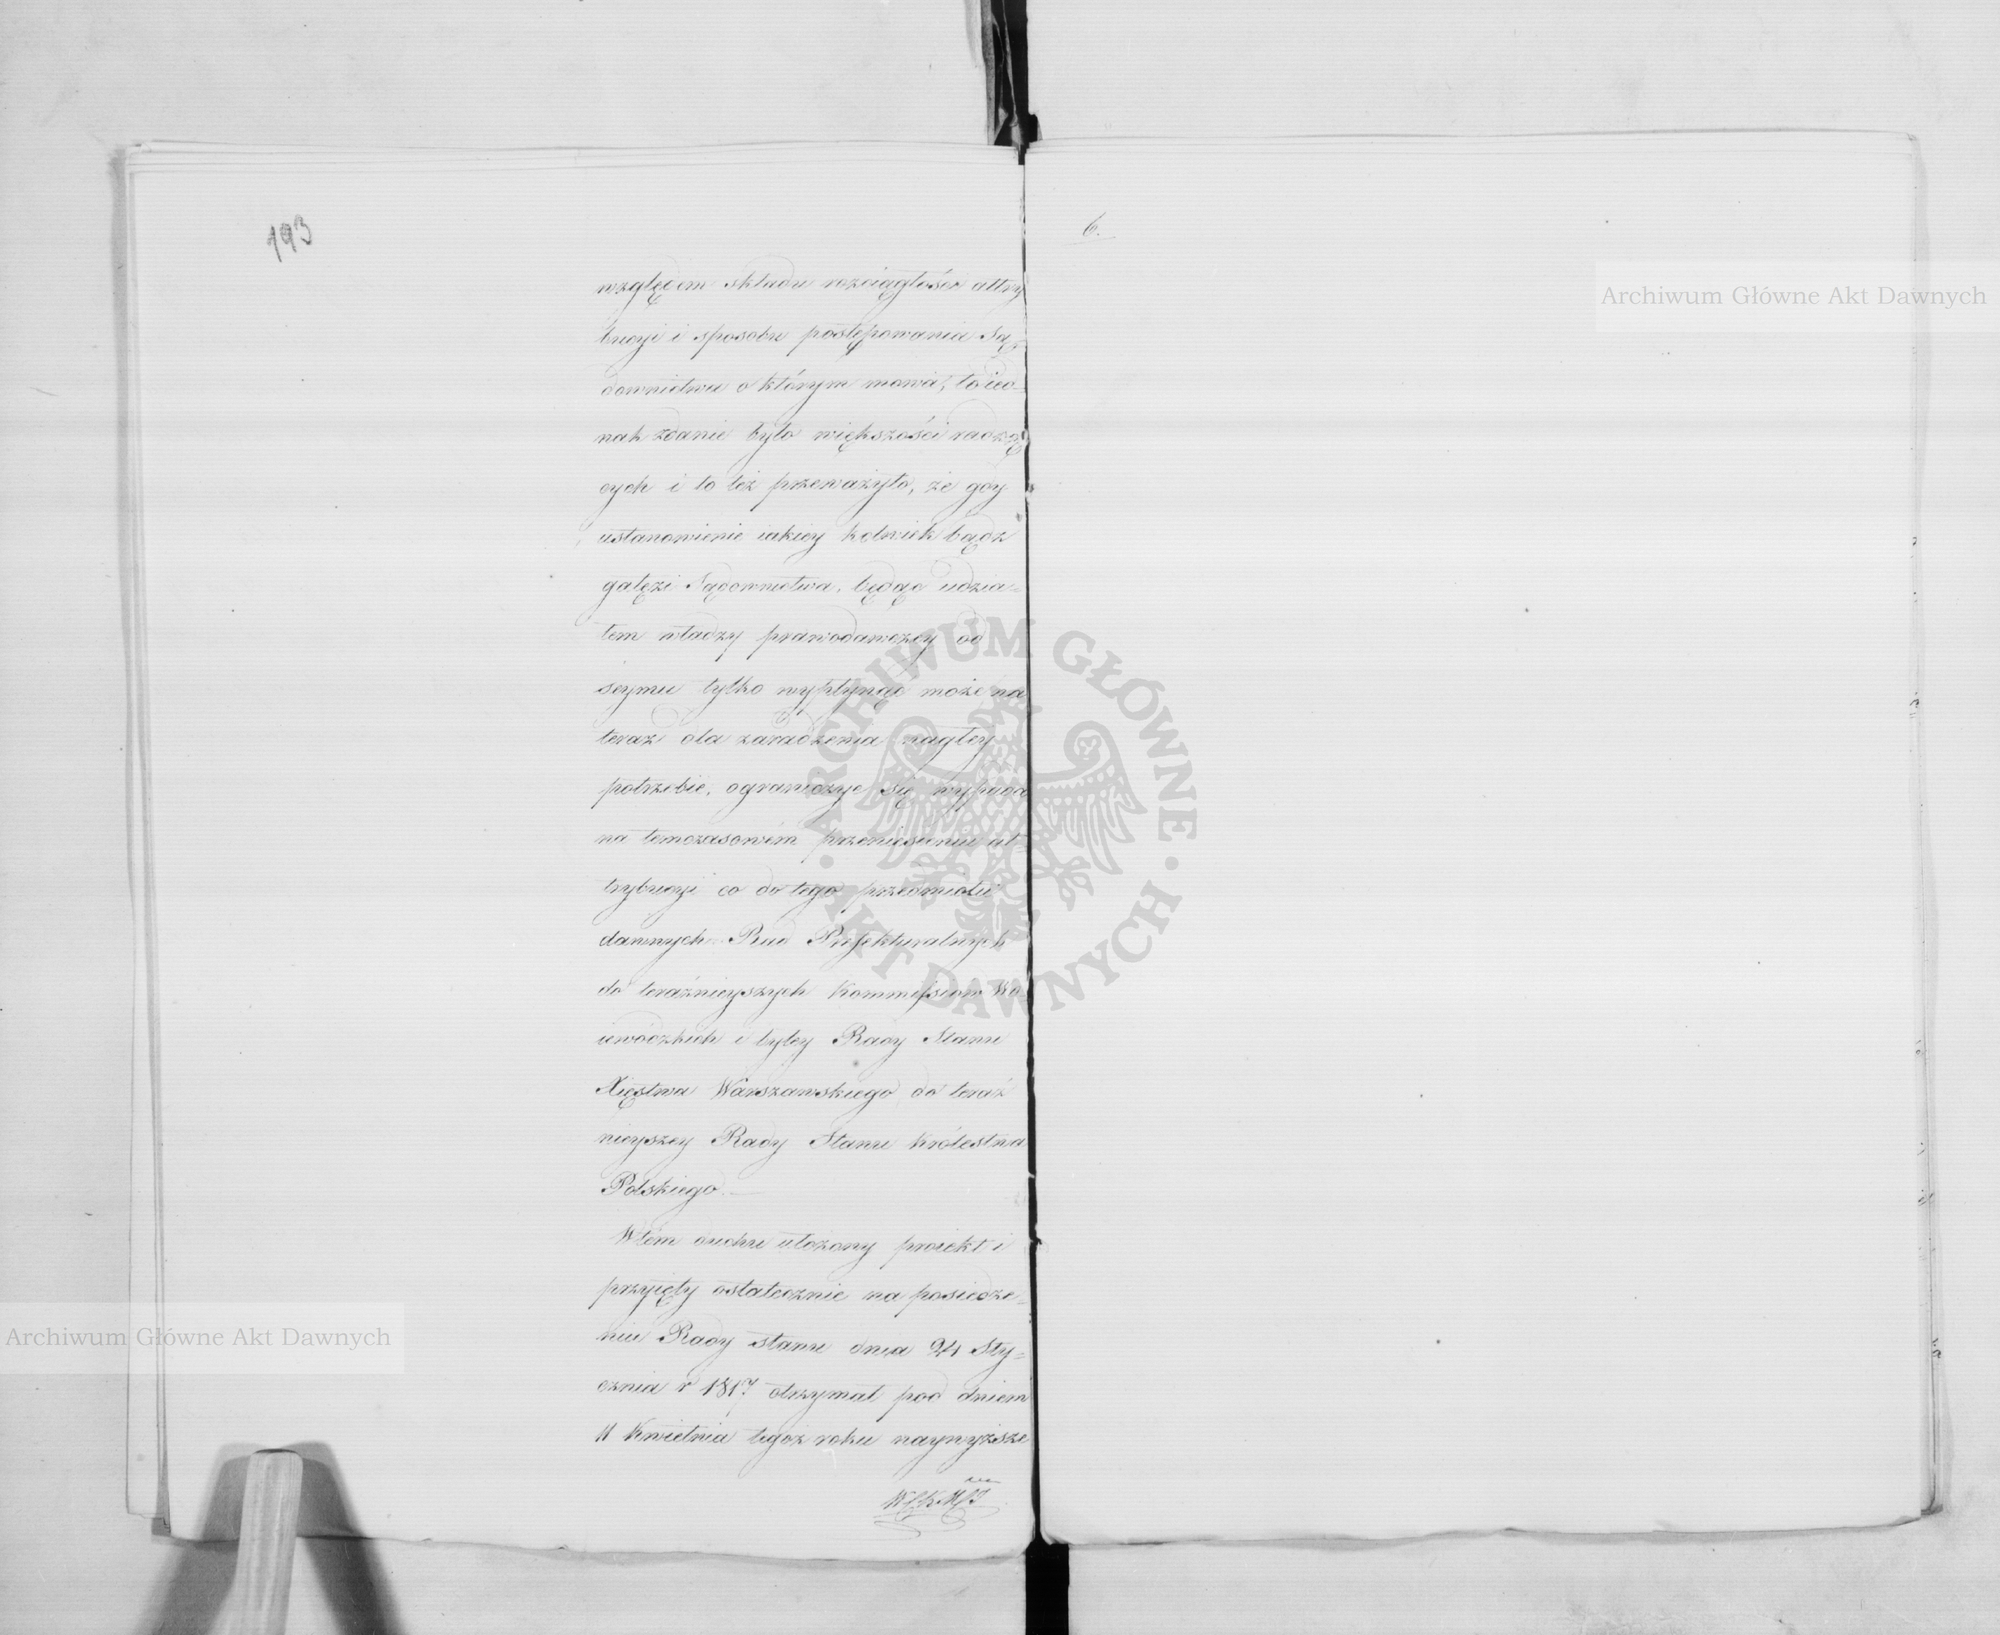 193
względem składu rozciągłości attry
bucyi i sposobu postępowania Są-
downictwa o którym mowa, to ied-
nak zdanie było większości radzą
cych i to też przeważyło, że gdy
ustanowienie iakiey kolwiek bądz
gałęzi Sądownictwa, będąc udzia-
łem władzy prawodawczey od
seymu tylko wypłynąć może na
teraz dla zaradzenia nagłey
potrzebie, ograniczyć się wypada
na temczasowém przeniesieniu at
trybucyi co do tego przedmiotu
dawnych Rad Prefekturalnych
do teraźnieyszych Kommissiom Wo-
iewódzkich i byłey Rady Stanu
Xięstwa Warszawskiego do teraź
nieyszey Rady Stanu Królestwa
Polskiego.—
W tém duchu ułożony proiekt i
przyięty ostatecznie na posiedze-
niu Rady stanu dnia 24 Sty=
cznia r 1817 otrzymał pod dniem
11 Kwietnia tegoż roku naywyższe
6.
Archiwum Główne Akt Dawnych
Archiwum Główne Akt Dawnych
ARCHIWUM GŁÓWNE
AKT DAWNYCH